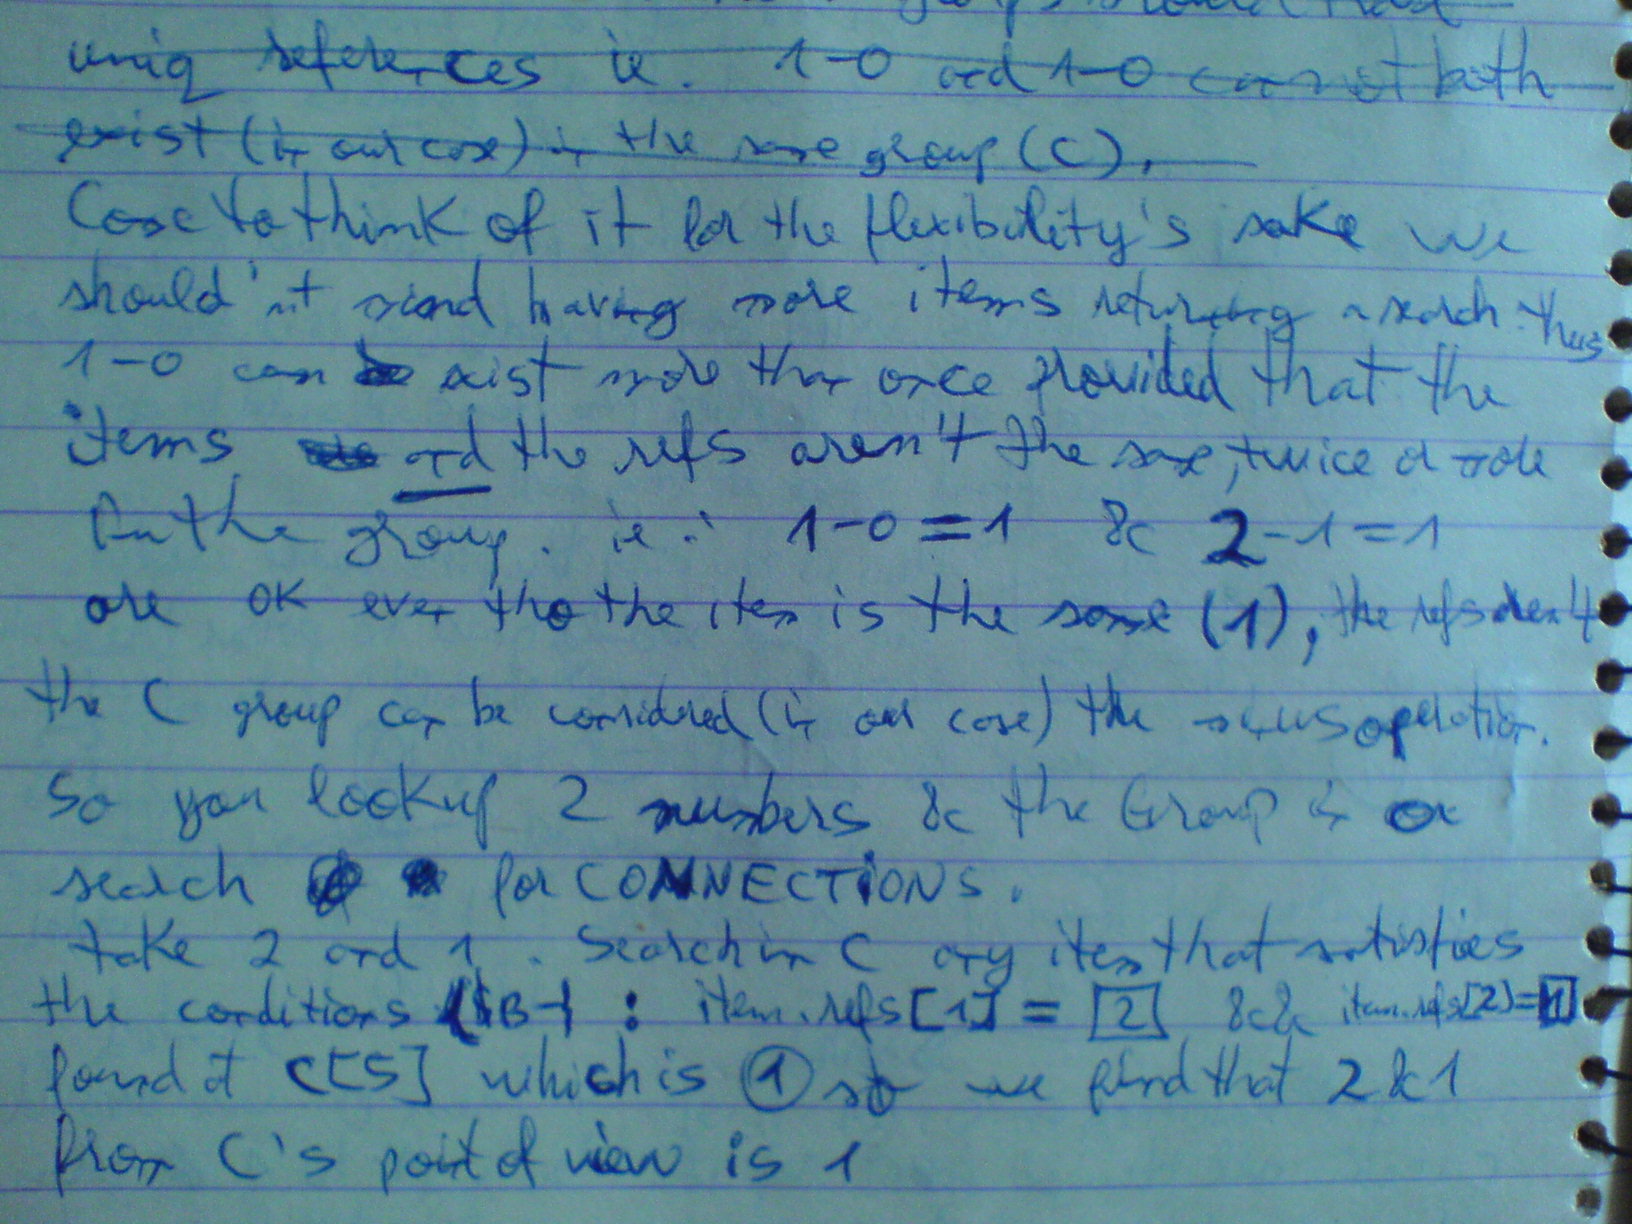 uniq references ie. 1-0 and 1-0 cannot both
exist (in our case) in the same group (C).
Come to think of it for the flexibility's sake we
should'nt mind having more items returning a search. thus
1-0 can exist more than once provided that the
items and the refs aren't the same, twice or more
in the group. ie: 1-0=1 & 2-1=1
are OK even tho the item is the same (1), the refs aren't
the C group can be considered (in our case) the minus operation.
So you lookup 2 numbers & the Group is a
search for CONNECTIONS.
take 2 and 1. Search in C any item that satisfies
the conditions : item.refs[1] = 2 && item.refs[2]=1
found at C[5] which is 1 so we find that 2&1
from C's point of view is 1